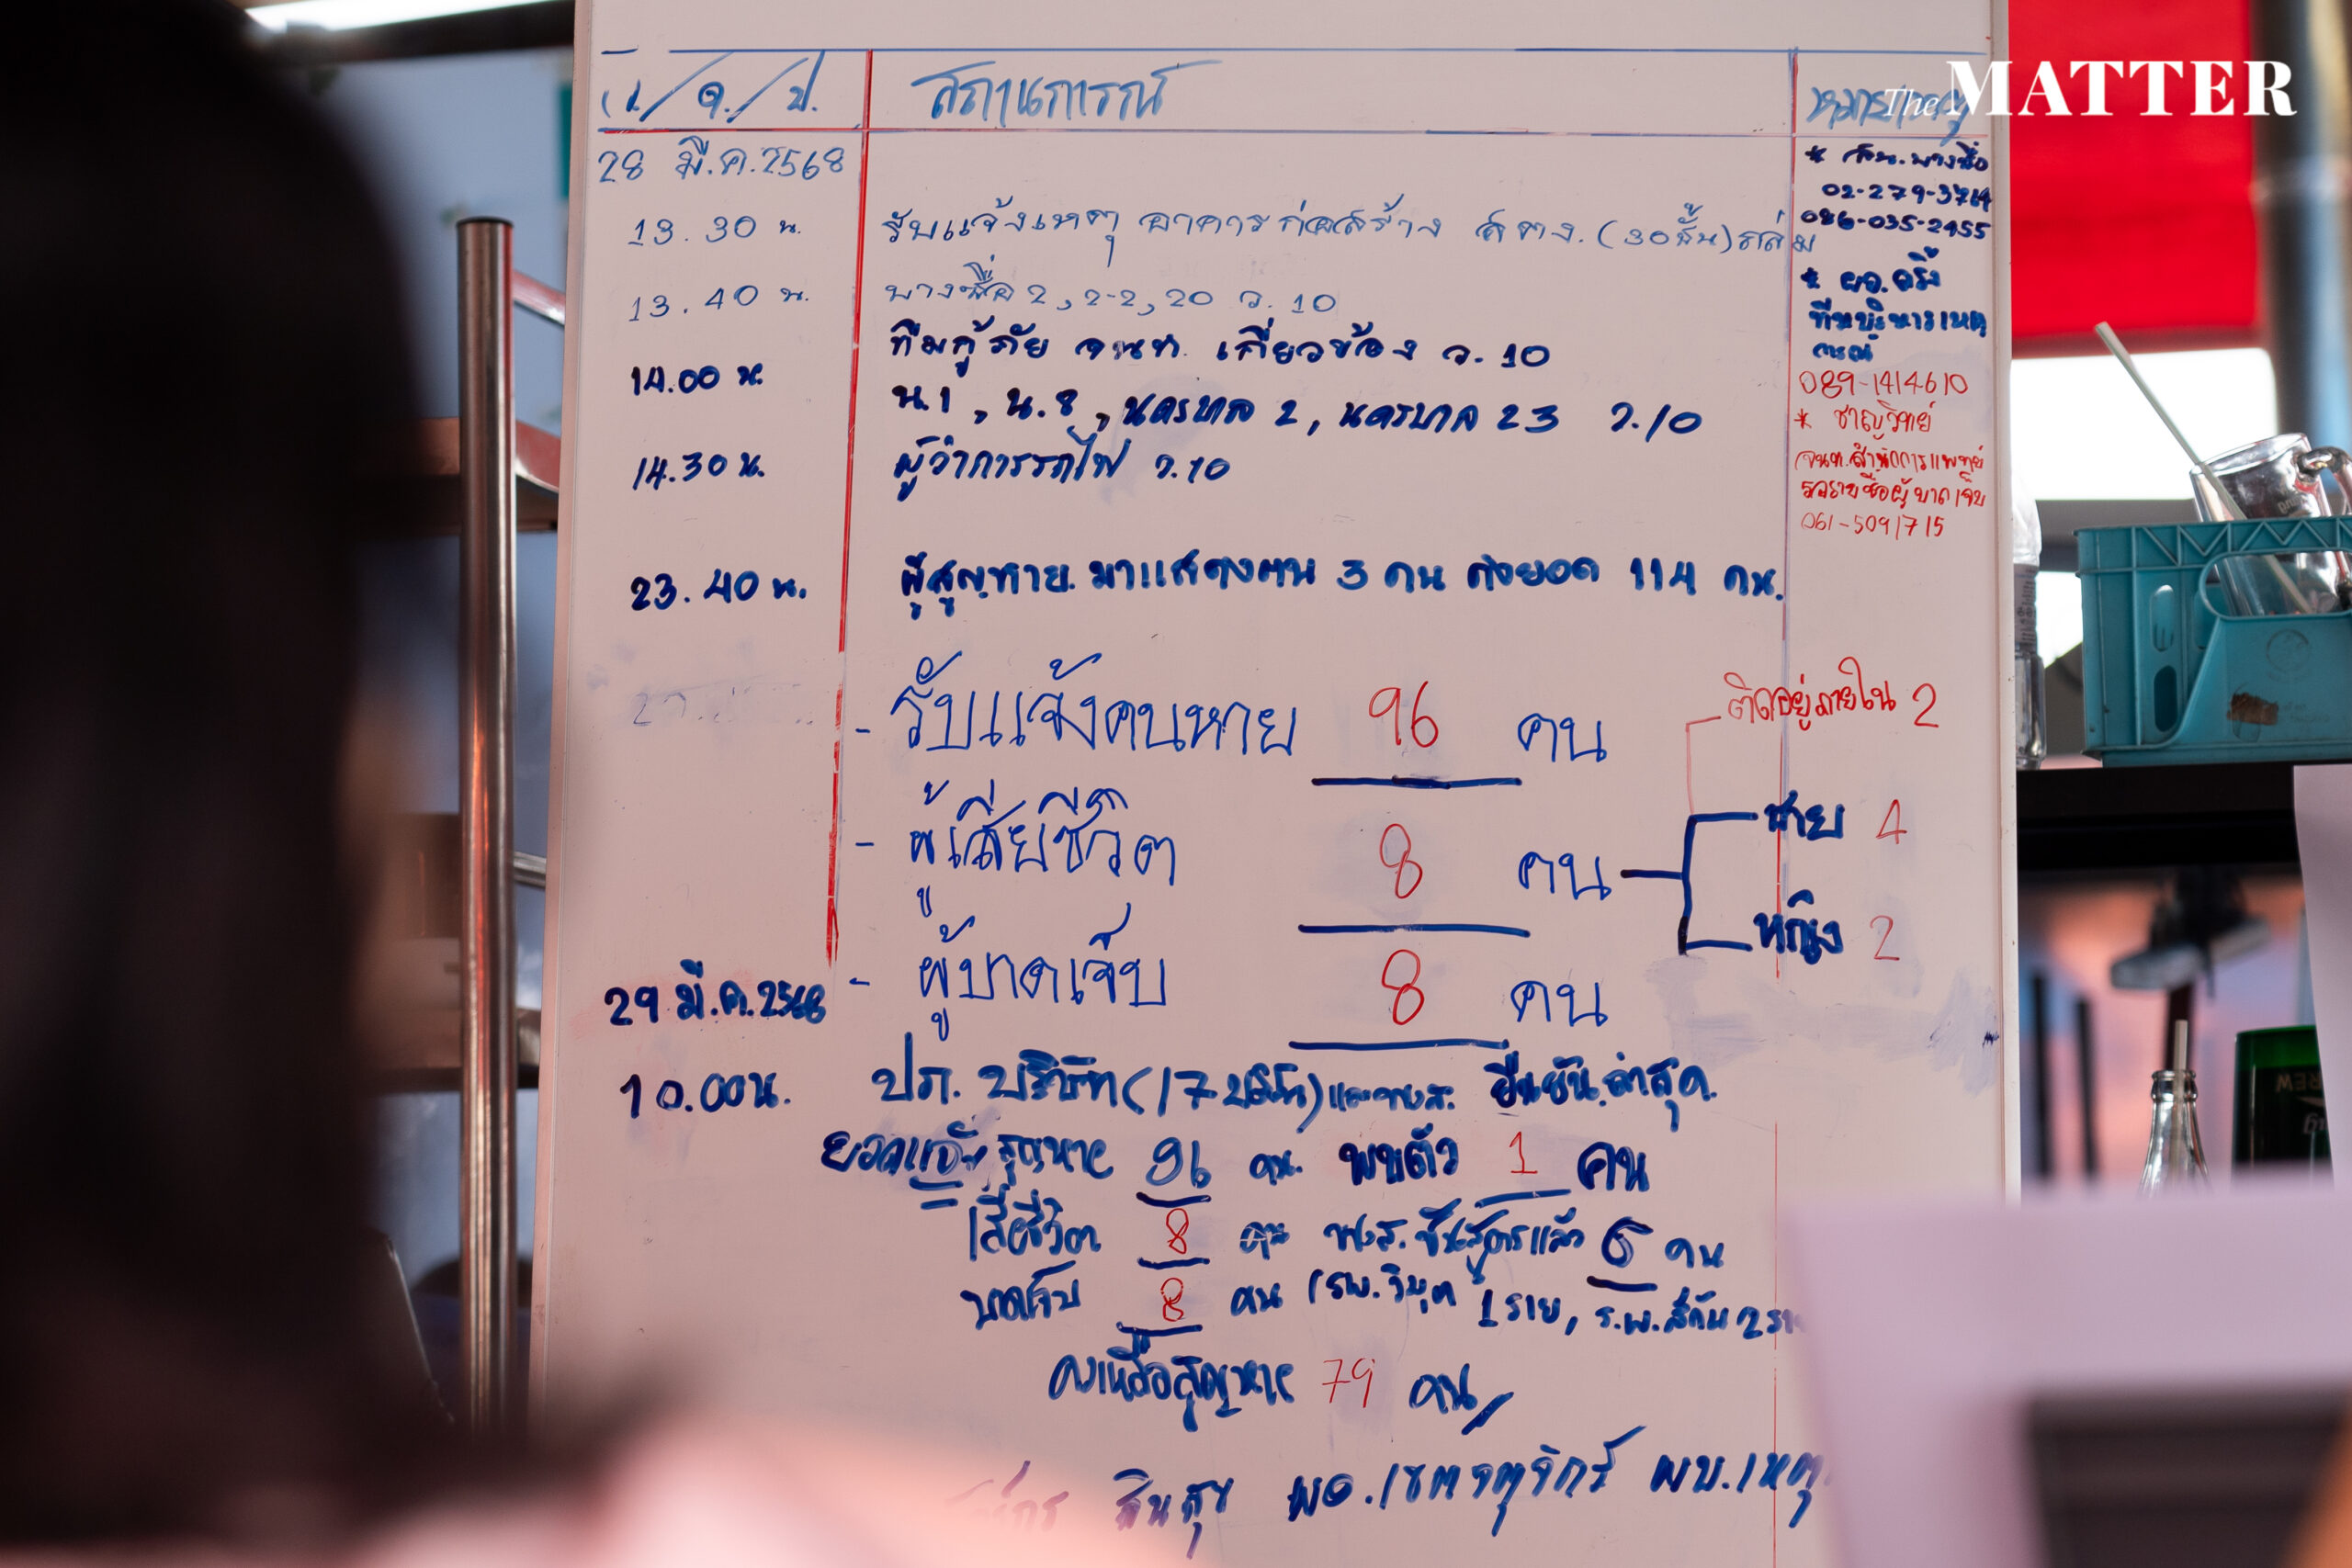 The MATTER
ว./ด./ป. สถานการณ์ หมายเหตุ
28 มี.ค.2568
13.30 น. รับแจ้งเหตุ อาคารก่อสร้าง สตง.(30ชั้น)ถล่ม
13.40 น. บางซื่อ 2, 2-2, 20 ว.10
ทีมกู้ภัย จนท. เกี่ยวข้อง ว.10
14.00 น. น.1, น.8, นครบาล 2, นครบาล 23 ว.10
14.30 น. ผู้ว่าการรถไฟ ว.10
23.40 น. ผู้สูญหาย มาแสดงตน 3 คน คงยอด 114 คน.
* สน.บางซื่อ
02-279-3714
086-035-2455
* ผอ.
ทีมบริหารเหตุ
การณ์
089-1414610
* ชาญวิทย์
จนท.สำนักการแพทย์
รายชื่อผู้บาดเจ็บ
061-5091715
- รับแจ้งคนหาย 96 คน
ติดอยู่ภายใน 2
- ผู้เสียชีวิต 8 คน
ชาย 4
หญิง 2
- ผู้บาดเจ็บ 8 คน
29 มี.ค.2568
10.00น. ปภ. บริษัท(17 บริษัท) และ ยืนยันล่าสุด.
ยอดแจ้งสูญหาย 96 คน. พบตัว 1 คน
เสียชีวิต 8 คน ชันสูตรแล้ว 6 คน
บาดเจ็บ 8 คน (รพ.วิมุต 1 ราย, ร.พ. 2 ราย
คงเหลือสูญหาย 79 คน
สินสุข ผอ.เขตจตุจักร ผบ.เหตุ